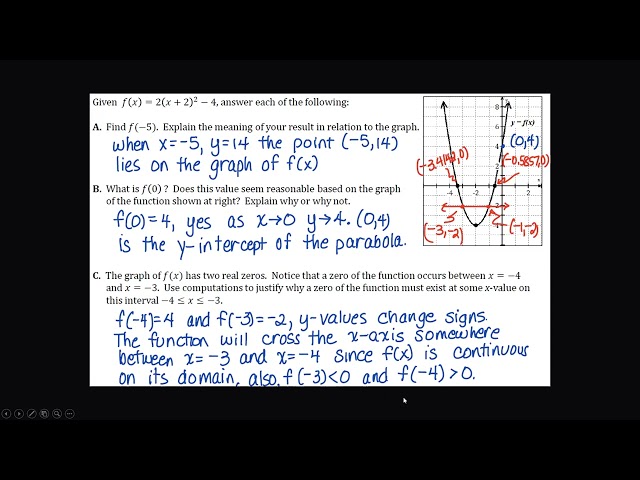 Given f(x) = 2(x + 2)² − 4, answer each of the following:
A. Find f(−5). Explain the meaning of your result in relation to the graph.
when x=-5, y=14 the point (-5,14)
lies on the graph of f(x)
B. What is f(0) ? Does this value seem reasonable based on the graph
of the function shown at right? Explain why or why not.
f(0)=4, yes as x→0 y→4. (0,4)
is the y-intercept of the parabola.
C. The graph of f(x) has two real zeros. Notice that a zero of the function occurs between x = −4
and x = −3. Use computations to justify why a zero of the function must exist at some x-value on
this interval −4 ≤ x ≤ −3.
f(-4)=4 and f(-3)=-2, y-values change signs.
The function will cross the x-axis somewhere
between x=-3 and x=-4 since f(x) is continuous
on its domain, also, f(-3)<0 and f(-4)>0.
8
6
y = f(x)
4
(0,4)
(-3.4142,0)
(-0.5857,0)
2
-4
-2
2
(-3,-2)
(-1,-2)